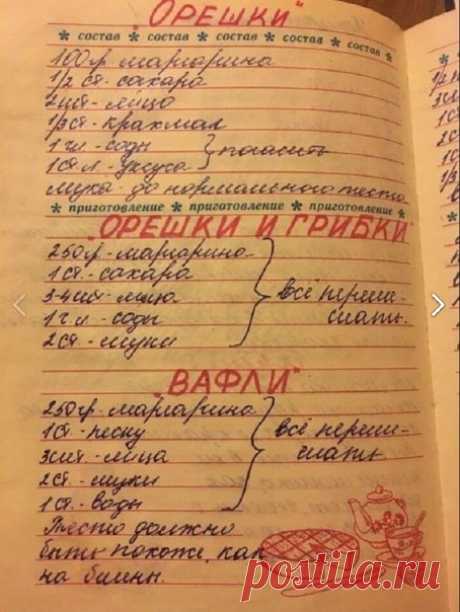 "ОРЕШКИ"
* состав * состав * состав * состав * состав *
100гр. маргарина
1/2 ст. сахара
2шт - яйцо
1/3 ст - крахмал
1 ч л - соды
1 ст л - уксуса } погасить
мука - до нормального теста
* приготовление * приготовление * приготовление *
"ОРЕШКИ И ГРИБКИ"
250гр - маргарина
1 ст. - сахара
3-4шт - яйца
1 ч л - соды
2 ст. - муки
всё переме-
шать.
ВАФЛИ"
250гр. маргарина
1 ст - песку
3шт. - яйца
2 ст. - муки
1 ст. - воды
всё переме-
шать
Тесто должно
быть похоже, как
на блины.
postila.ru